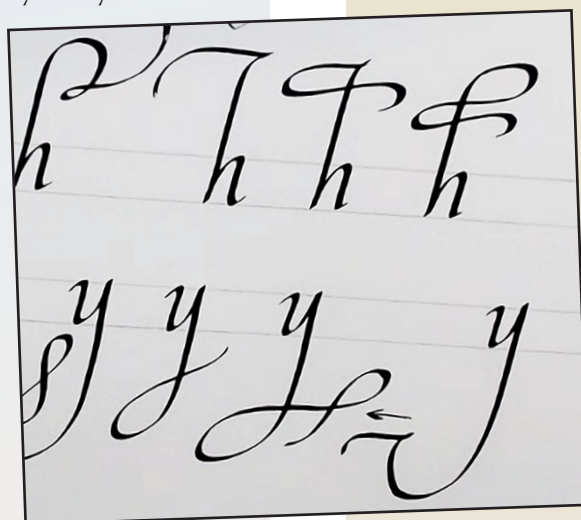 h h h h
y y y y